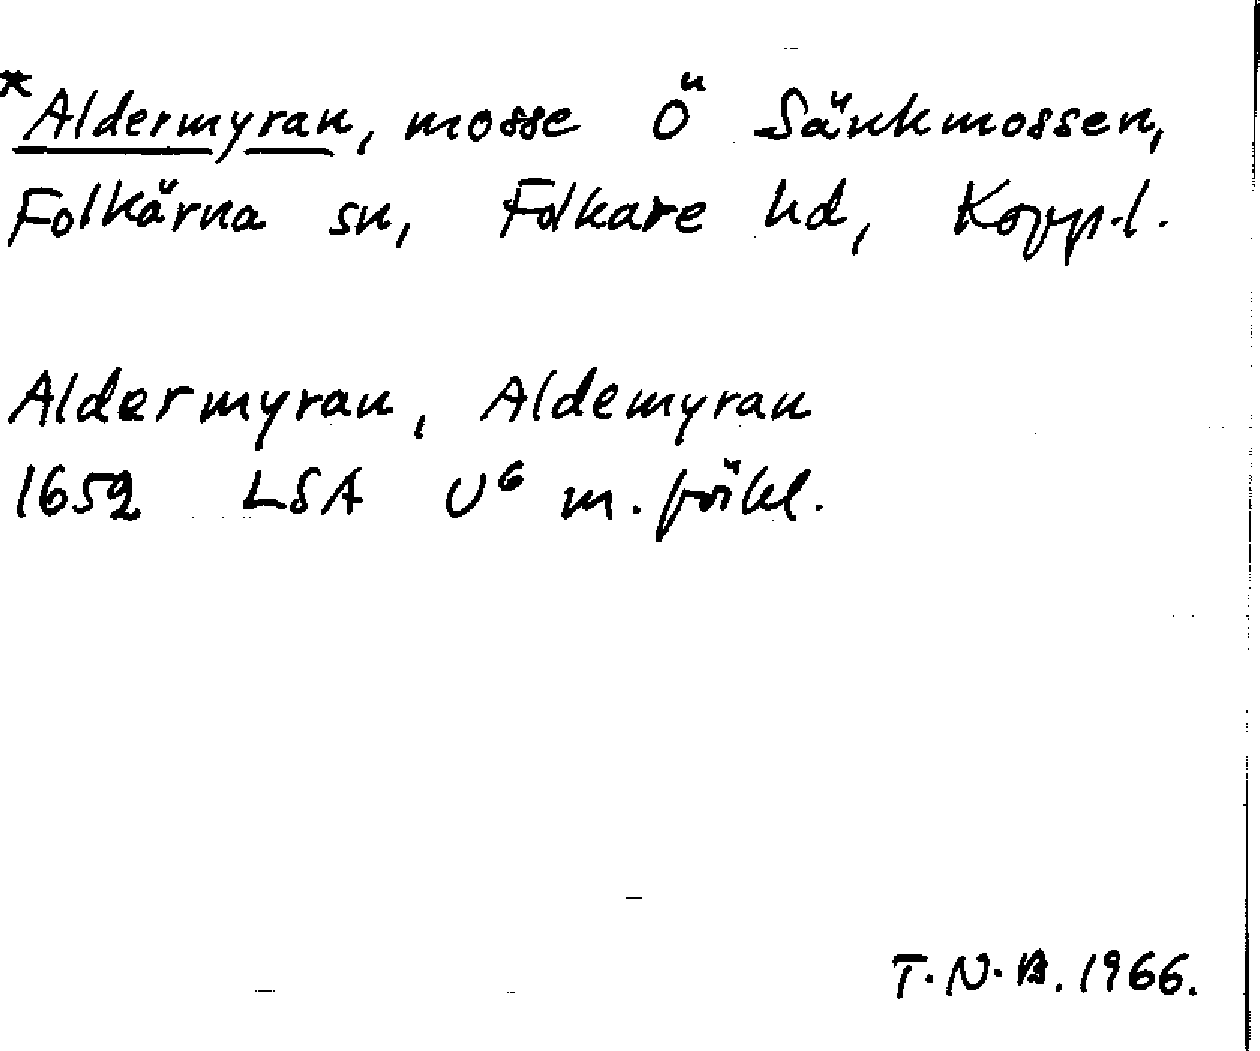 *Aldermyran, mosse Ö Sänkmossen,
Folkärna sn, Folkare hd, Kopp.l.
Aldermyran, Aldemyran
1652 LSA U⁶ m. förkl.
T.N.B. 1966.